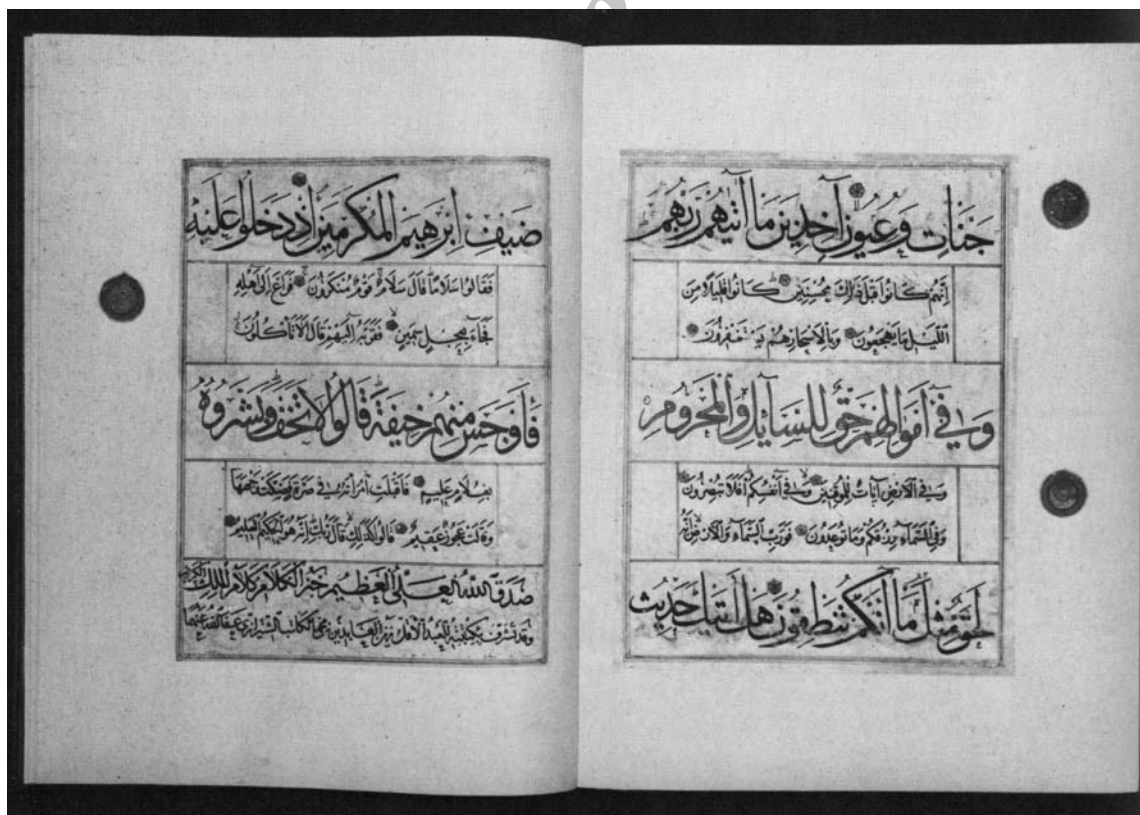 جَنَّاتٍ وَعُيُونٍ آخِذِينَ مَا آتَيهُمْ رَبُّهُمْ
إِنَّهُمْ كَانُوا قَبْلَ ذَلِكَ مُحْسِنِينَ كَانُوا قَلِيلًا مِنَ
اللَّيْلِ مَا يَهْجَعُونَ وَبِالْأَسْحَارِ هُمْ يَسْتَغْفِرُونَ
وَفِي أَمْوَالِهِمْ حَقٌّ لِلسَّايِلِ وَالْمَحْرُومِ
وَفِي الْأَرْضِ آيَاتٌ لِلْمُوقِنِينَ وَفِي أَنْفُسِكُمْ أَفَلَا تُبْصِرُونَ
وَفِي السَّمَاءِ رِزْقُكُمْ وَمَا تُوعَدُونَ فَوَرَبِّ السَّمَاءِ وَالْأَرْضِ إِنَّهُ
لَحَقٌّ مِثْلَ مَا أَنَّكُمْ تَنْطِقُونَ هَلْ أَتَيكَ حَدِيثُ
ضَيْفِ إِبْرَهِيمَ الْمُكْرَمِينَ إِذْ دَخَلُوا عَلَيْهِ
فَقَالُوا سَلَامًا قَالَ سَلَامٌ قَوْمٌ مُنْكَرُونَ فَرَاغَ إِلَى أَهْلِهِ
فَجَاءَ بِعِجْلٍ سَمِينٍ فَقَرَّبَهُ إِلَيْهِمْ قَالَ أَلَا تَأْكُلُونَ
فَأَوْجَسَ مِنْهُمْ خِيفَةً قَالُوا لَا تَخَفْ وَبَشَّرُوهُ
بِغُلَامٍ عَلِيمٍ فَأَقْبَلَتِ امْرَأَتُهُ فِي صَرَّةٍ فَصَكَّتْ وَجْهَهَا
وَقَالَتْ عَجُوزٌ عَقِيمٌ قَالُوا كَذَلِكِ قَالَ رَبُّكِ إِنَّهُ هُوَ الْحَكِيمُ الْعَلِيمُ
صدق الله العلي العظيم خير الكلام كلام الملك
وقد تشرف بكتابته العبد الأقل زين العابدين الكاتب الشيرازي عفا الله عنهما